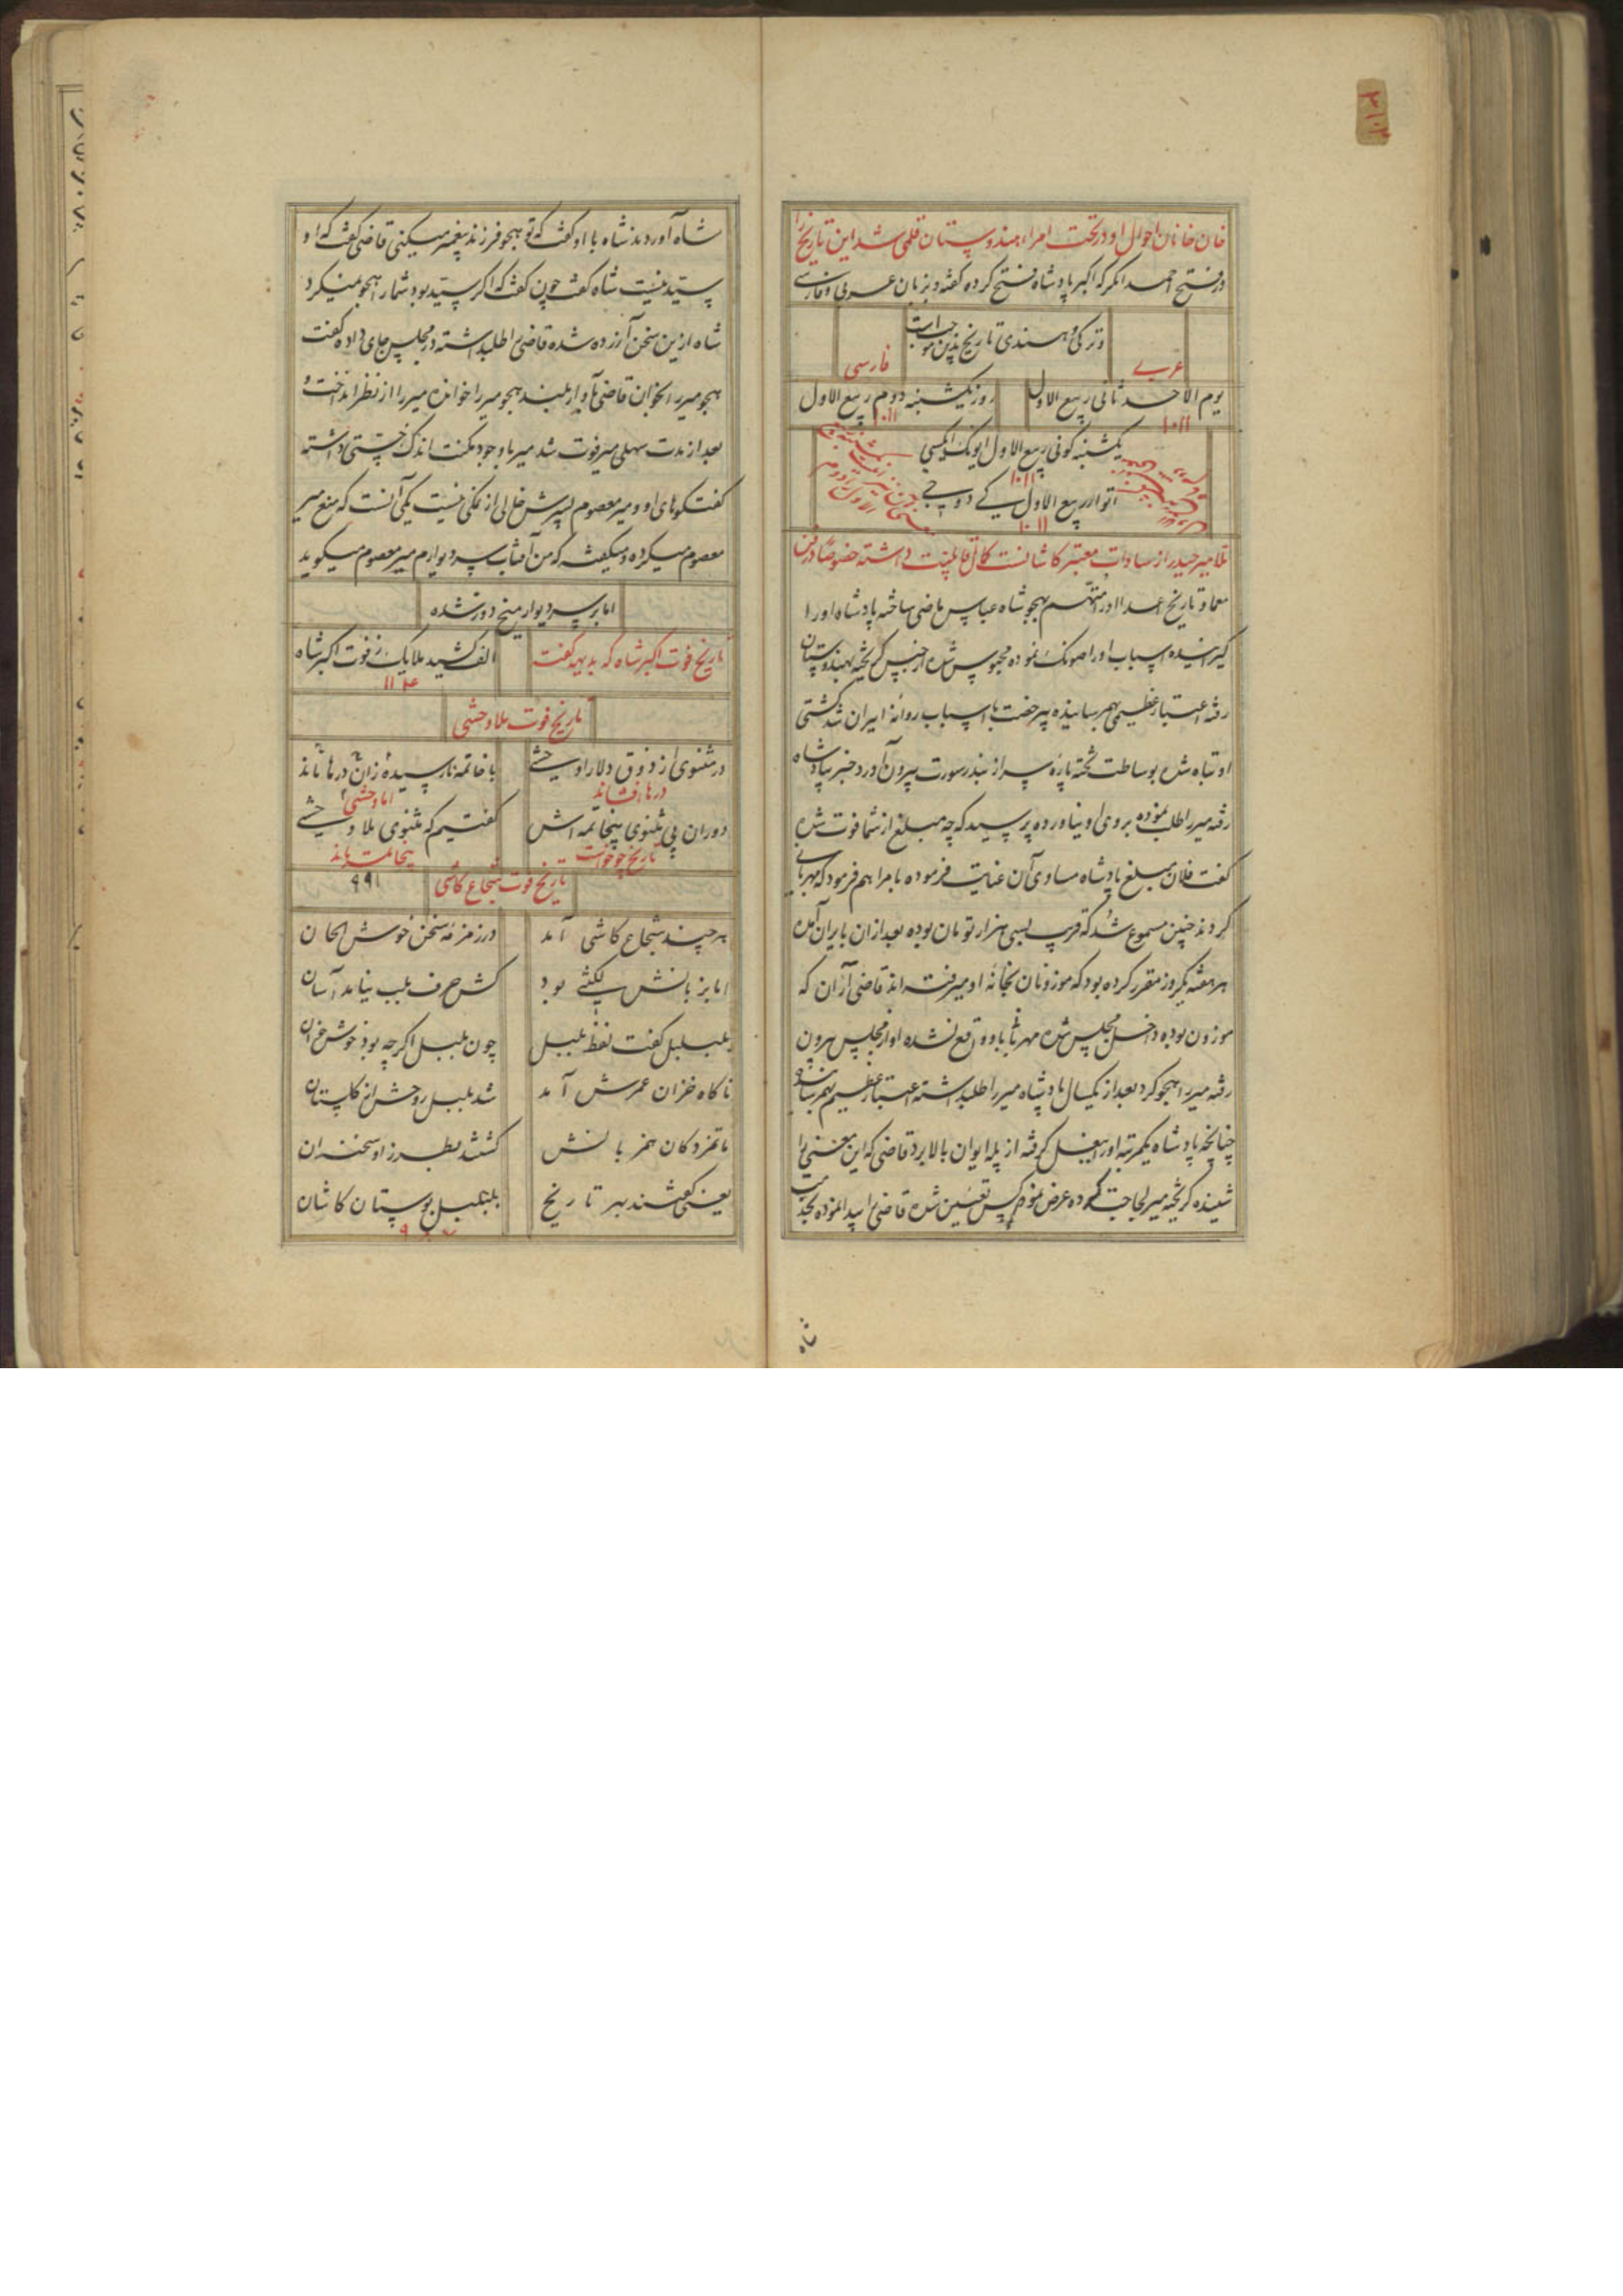 خان خانان احوال او در تحت امراء هندوستان قلمی شد این تاریخ را
در فتح احمد انکر که اکبر پادشاه فتح کرده گفته و بزبان عربی و فارسی
و ترکی و هندی تاریخ بدین موجب است
عربی
فارسی
یوم الاحد ثانی ربیع الاول
روز یکشنبه دوم ربیع الاول
۱۰۱۱
۱۰۱۱
یکشنبه کونی ربیع الاول
۱۰۱۱
اتوار ربیع الاول کے دوجے
۱۰۱۱
میر حیدر از سادات معتبر کاشانست کمال قابلیت داشته خصوصا در فن
معما و تاریخ اعدا او را متهم بهجو شاه عباس ماضی ساخته پادشاه او را
گیرانیده اسباب او را نموده محبوس شده از حبس گریخته بهندوستان
رفته اعتبار عظیمی بهم رسانیده پس رخصت با اسباب روانهٔ ایران شد کشتی
او تباه شده بوساطت تخته پاره سر از بندر سورت بیرون آورد خبر بپادشاه
رفته میر را طلب نموده بروی او نیاورده پرسید که چه مبلغ از شما فوت شده
گفت فلان مبلغ پادشاه مساوی آن عنایت فرموده بامرا هم فرمود که مهربانی
کردند چنین مسموع شد که قریب بسی هزار تومان بوده بعد از آن بایران آمده
هر هفته یکروز مقرر کرده بود که موزونان بخانهٔ او میرفته اند قاضی آران که
موزون بوده داخل مجلس شده میر باو واقع نشده او از مجلس بیرون
رفته میر را هجو کرد بعد از یکسال پادشاه میر را طلب داشته اعتبار عظیم بهم رسانیده
چنانچه پادشاه یکمرتبه او را بغل گرفته از پله ایوان بالا برد قاضی که این معنی را
شنیده گریخته میر لجاجت کرده عرض نمود کس تعیین شده قاضی را پیدا نموده بخدمت
شاه
شاه آوردند شاه با او گفت که تو هجو فرزند پیغمبر میکنی قاضی گفت که او
سید نیست شاه گفت چون گفت که اگر سید بود شما را هجو نمیکرد
شاه ازین سخن آزرده شده قاضی را طلب داشته در مجلس جای داده گفت
هجو میر را بخوان قاضی بآواز بلند هجو میر را خوانده میر را از نظر انداخت و
بعد از مدت سهلی میر فوت شد میر با وجود مکنت اندک خستی داشته
گفتگوهای او و میر معصوم پسرش خالی از نمکی نیست یکی آنست که منع میر
معصوم میکرده و میگفته که من آفتاب سر دیوارم میر معصوم میگوید
اما بر سر دیوار میخ دوز شده
تاریخ فوت اکبر شاه که بدیهه گفت
الف کشید ملایک ز فوت اکبر شاه
تاریخ فوت ملا وحشی
در مثنوی از ذوق دلارا وحشی
با خاتمه نارسیده زان درها ماند
درها افشاند
اما وحشی
دوران پی مثنوی بیخاتمه اش
گفتیم که مثنوی ملا وحشی
تاریخ چو خواست
بیخاتمت ماند
تاریخ فوت شجاع کاشی
۹۹۱
هر چند شجاع کاشی آمد
در زمزمهٔ سخن خوش الحان
اما بزبانش لکنتی بود
کش حرف بلب نیامد آسان
بلبلبل گفت لفظ بلبل
چون بلبل اگر چه بود خوش خوان
ناگاه خزان عمرش آمد
شد بلبل روحش از گلستان
ماتمزدگان همزبانش
گشتند بطرز او سخندان
یعنی گفتند بهر تاریخ
بلبلبل بوستان کاشان